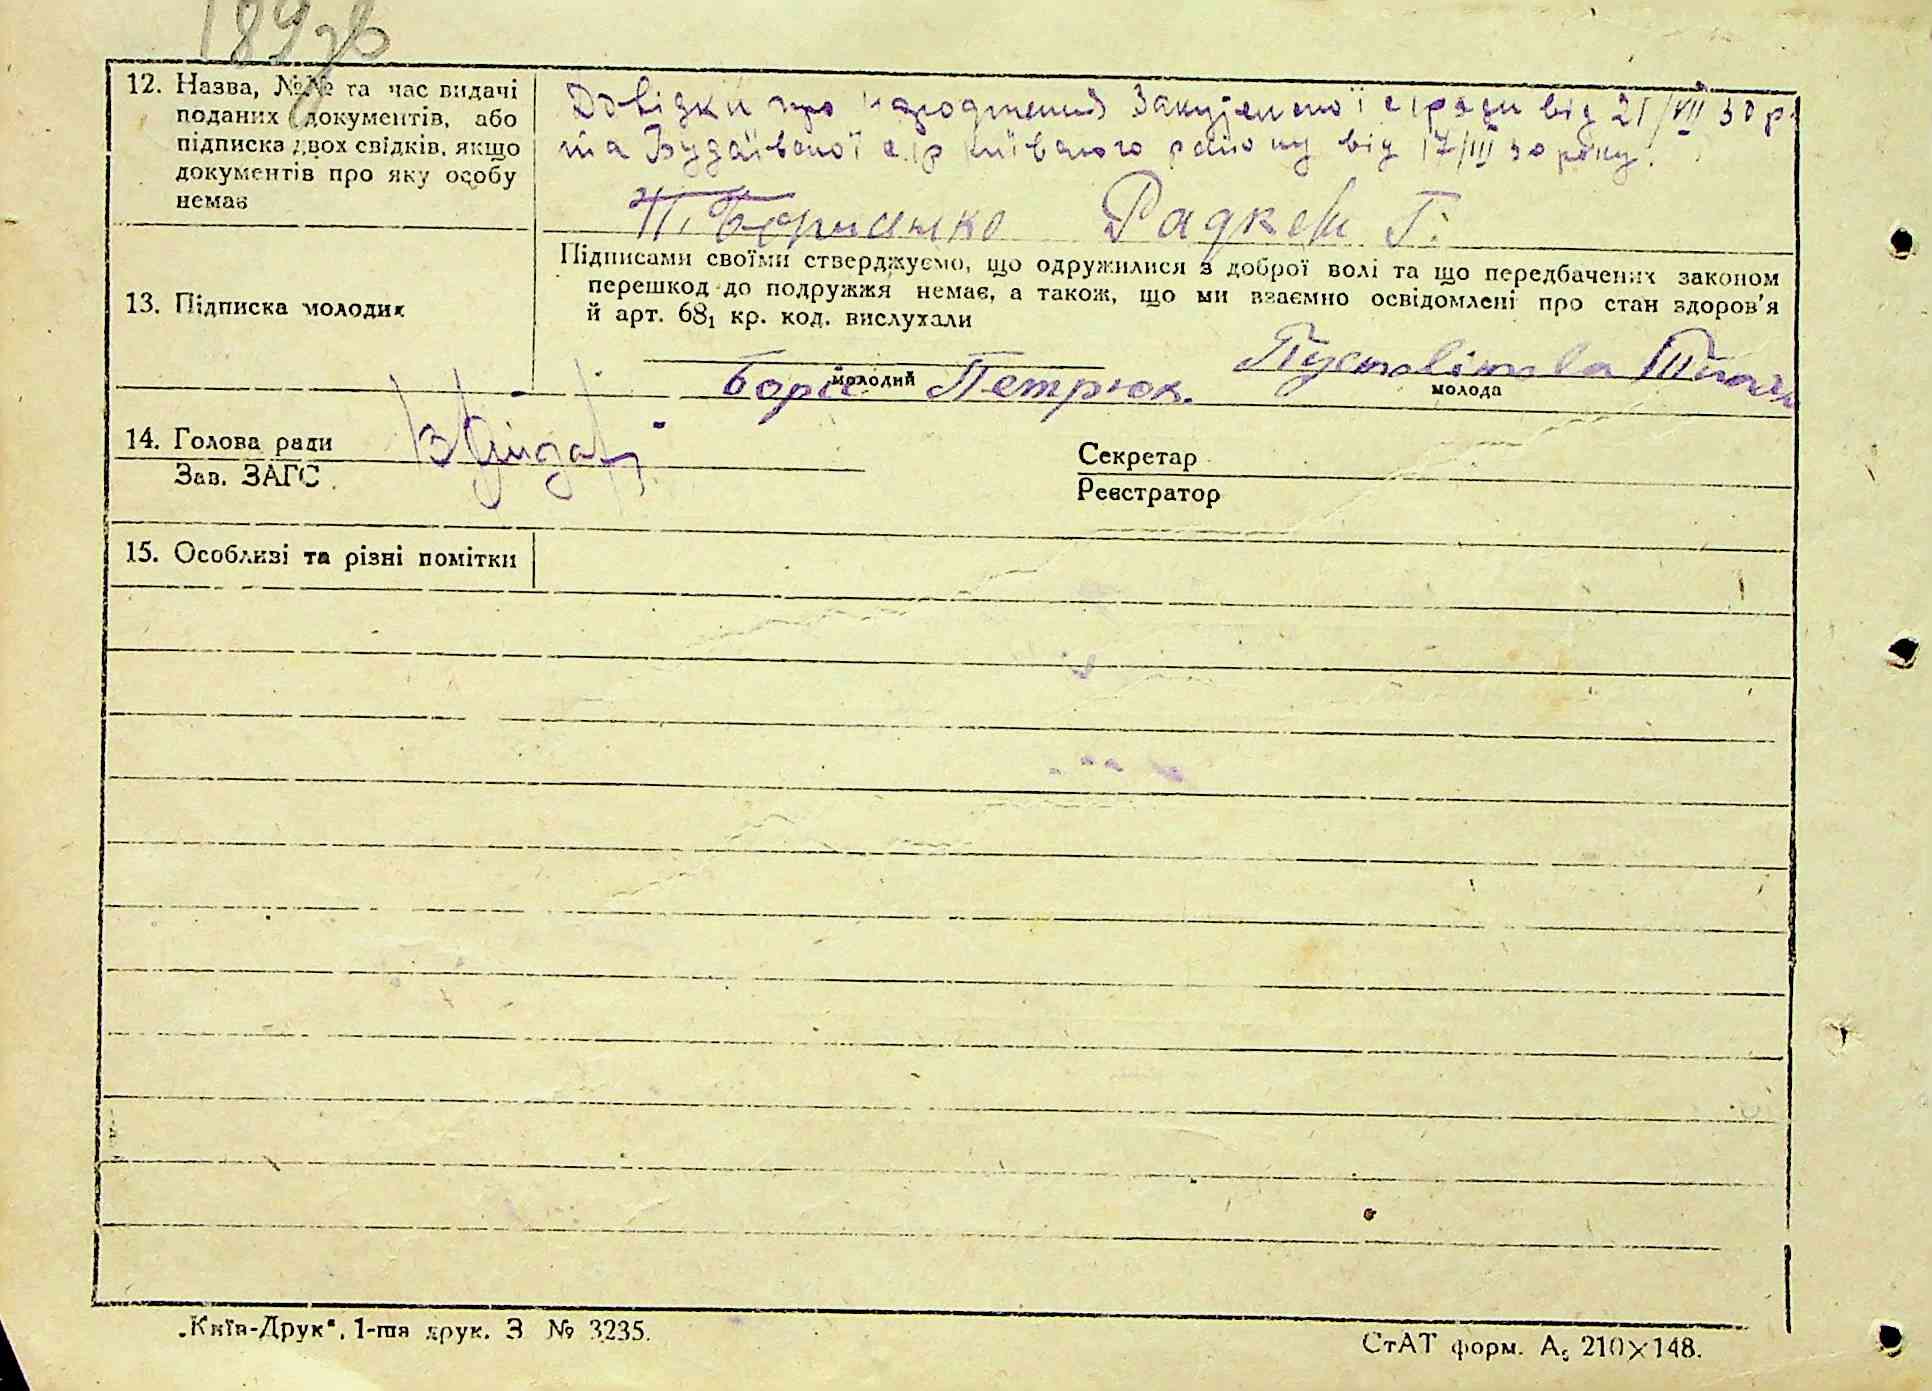 189зв
12. Назва, №№ та час видачі
поданих документів, або
підписка двох свідків, якщо
документів про яку особу
немає
Довідки про народження сіради від 21/VII 30 р.
та Будаївської с/р київського району від 17/III 30 року.
Радкевич Г.
13. Підписка молодих
Підписами своїми стверджуємо, що одружилися з доброї волі та що передбачених законом
перешкод до подружжя немає, а також, що ми взаємно освідомлені про стан здоров'я
й арт. 68₁ кр. код. вислухали
Борис Петрюк.
молодий
Пустовітова
молода
14. Голова ради
Зав. ЗАГС
Секретар
Реєстратор
15. Особливі та різні помітки
„Київ-Друк“. 1-ша друк. З № 3235.
СтАТ форм. А₅ 210×148.